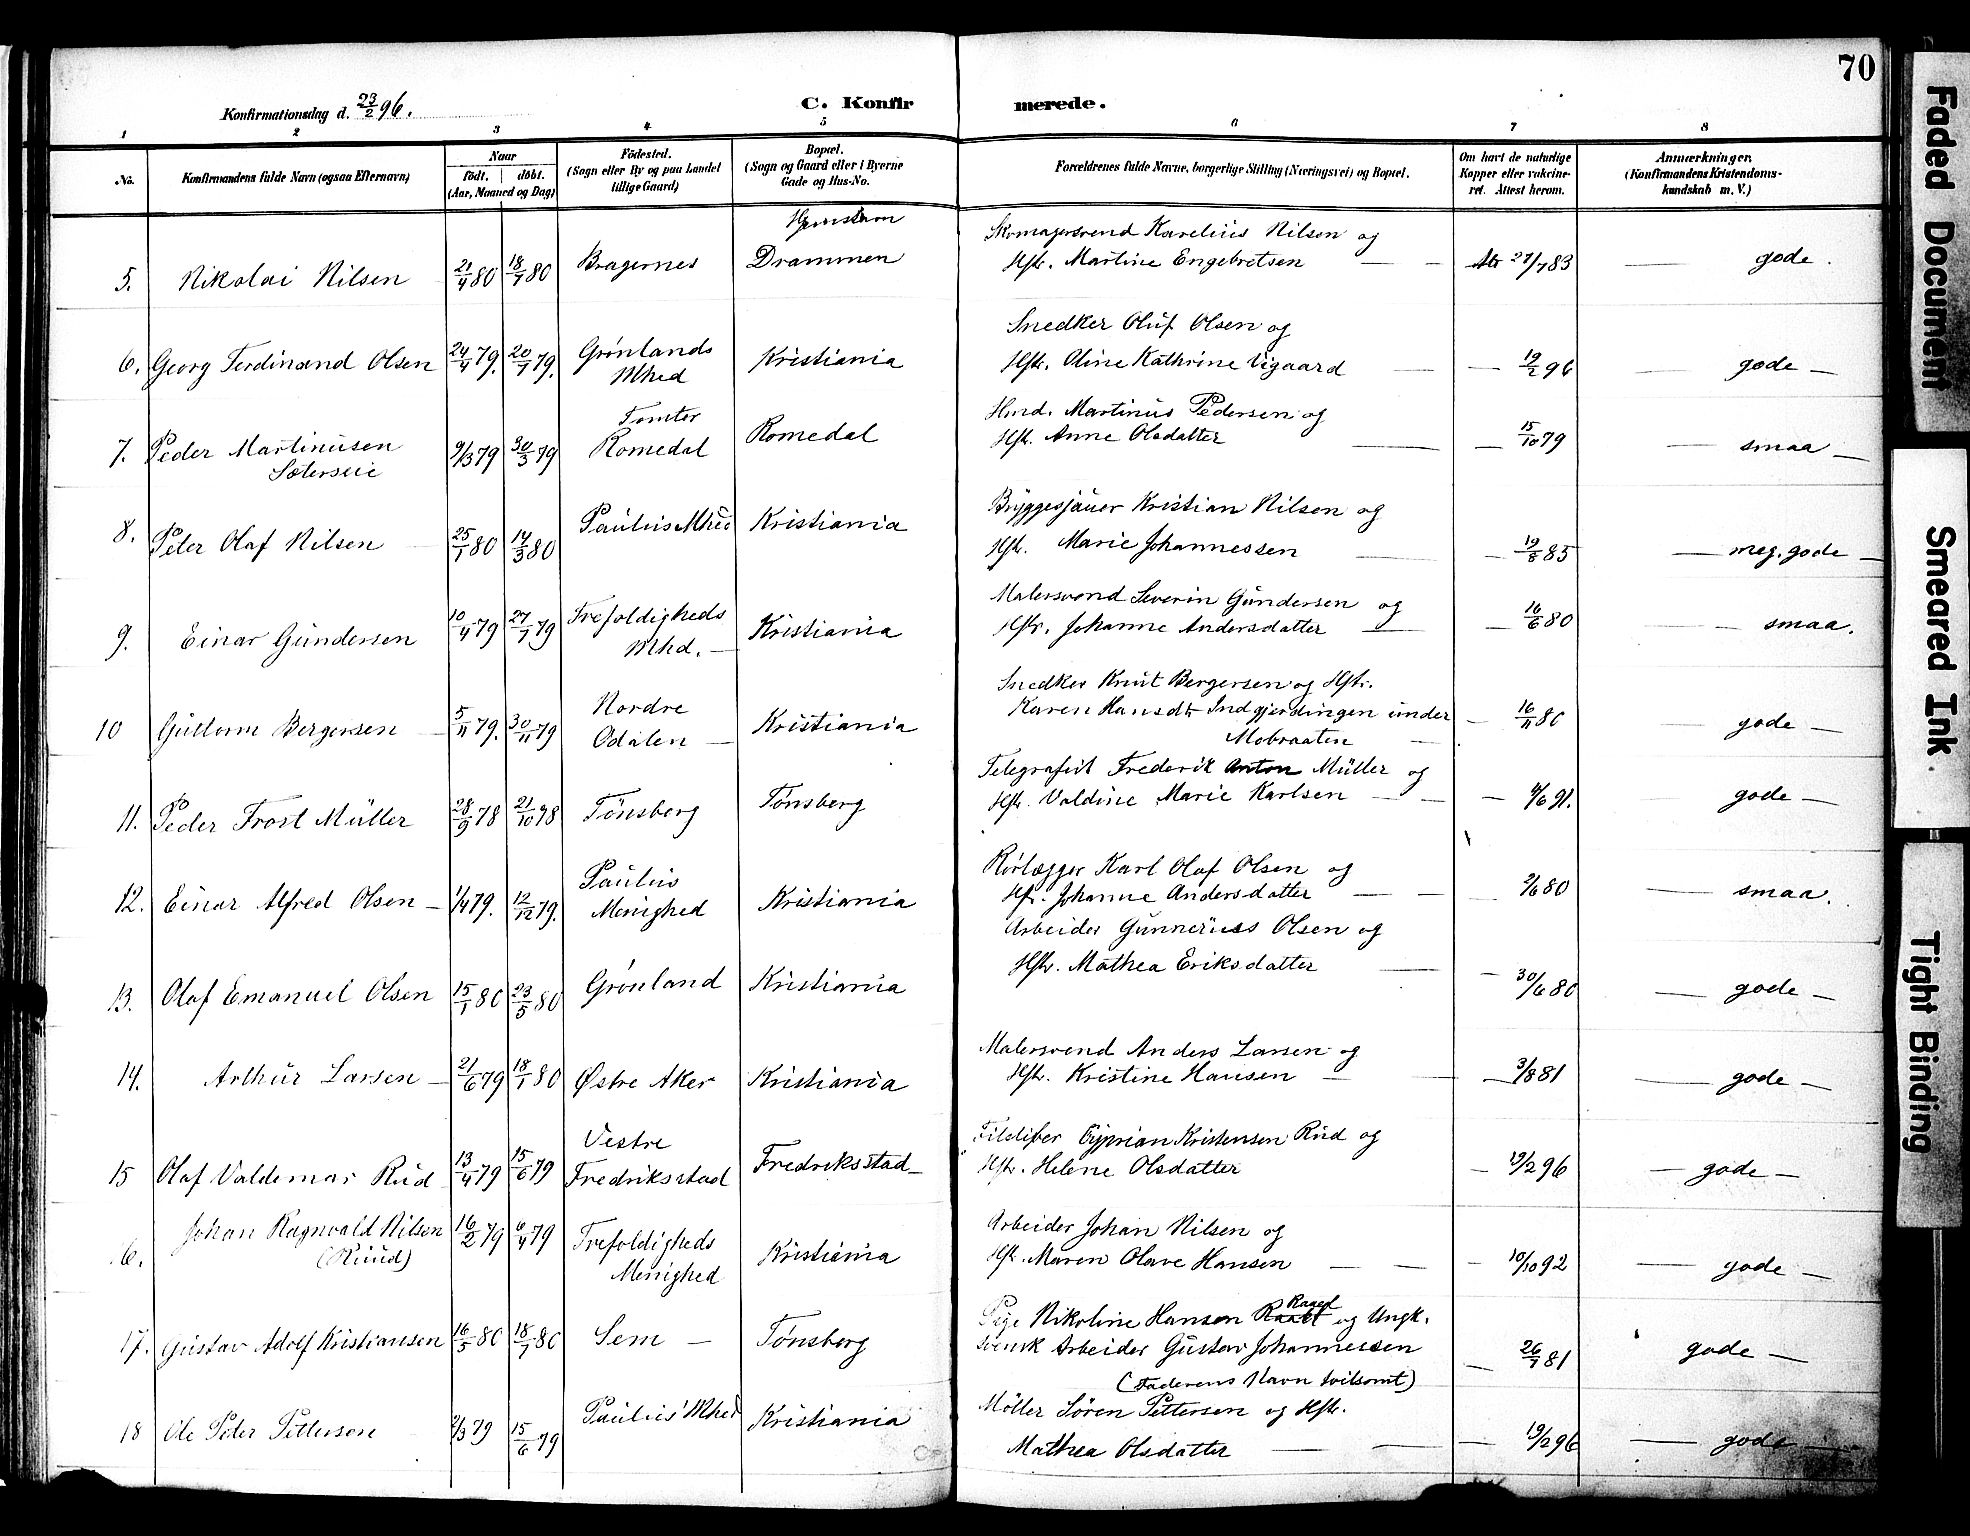 70
Konfirmationsdag d. 23/2 96.
C. Konfirmerede.
1 2 3 4 5 6 7 8
No.
Konfirmandens fulde Navn (ogsaa Efternavn)
Naar
født. | døbt.
(Aar, Maaned og Dag)
Fødested.
(Sogn eller By og paa Landet
tillige Gaard)
Bopæl.
(Sogn og Gaard eller i Byerne
Gade og Hus-No.
Forældrenes fulde Navne, borgerlige Stilling (Næringsvei) og Bopæl.
Om havt de naturlige
Kopper eller vakcine-
ret. Attest herom.
Anmærkninger.
(Konfirmandens Kristendoms-
kundskab m. V.)
5. Nikolai Nilsen 21/4 80 18/7 80 Bragernes Drammen
Skomagersvend Karelius Nilsen og
Hstr. Martine Engebretsen — 83 — gode.
6. Georg Ferdinand Olsen 24/4 79. 20/7 79. Grønlands Mhed Kristiania
Snedker Oluf Olsen og
Hstr. Oline Kathrine Vigaard — 19/2 96 — gode —
7. Peder Martinusen Sæterseie 9/3 79 30/3 79 Tomter Romedal Romedal
Hmd. Martinus Pedersen og
Hstr. Anne Olsdatter — 15/10 79 — smaa —
8. Peter Olaf Nilsen 25/1 80 14/3 80 Paulus Mhed Kristiania
Bryggesjauer Kristian Nilsen og
Hstr. Marie Johannessen — 19/8 85 — meg. gode —
9. Einar Gundersen 10/4 79 27/7 79 Trefoldigheds Mhd. — Kristiania
Malersvend Severin Gundersen og
Hstr. Johanne Andersdatter — 16/6 80 — smaa.
10 Guttorm Bergersen 5/11 79. 30/11 79 Nordre Odalen — Kristiania
Snedker Knut Bergersen og Hstr.
Karen Hansdtr Indgjerdingen under
Mobraaten — 16/11 80 — gode —
11. Peder Frost Müller 28/9 78 21/10 78 Tönsberg Tönsberg
Telegrafist Frederik Anton Müller og
Hstr. Valdine Marie Karlsen — 4/6 91. — gode —
12. Einar Alfred Olsen — 1/4 79. 12/12 79. Paulus Menighed Kristiania
Rørlægger Karl Olaf Olsen og
Hstr. Johanne Andersdatter — 2/6 80 — smaa.
13. Olaf Emanuel Olsen 15/1 80 23/5 80 Grønland Kristiania
Arbeider Gunnerius Olsen og
Hstr. Mathea Eriksdatter — 30/6 80 — gode —
14. Arthur Larsen — 21/6 79 18/1 80 Østre Aker Kristiania
Malersvend Anders Larsen og
Hstr. Kristine Hansen — 3/8 81 — gode —
15 Olaf Valdemar Rud 13/4 79 15/6 79 Vestre Fredriksstad Fredriksstad —
Cyprian Kristensen Rud og
Hstr. Helene Olsdatter — 19/2 96 — gode —
6. Johan Ragnvald Nilsen (Ruud) 16/2 79 6/4 79 Trefoldigheds Menighed Kristiania
Arbeider Johan Nilsen og
Hstr. Maren Olave Hansen — 10/10 92 — gode —
17. Gustav Adolf Kristiansen 16/5 80 18/7 80 Sem — Tønsberg
Pige Nikoline Hansen Raael og Ungk.
svensk Arbeider Gustav Johannessen
(Faderens Navn tvilsomt) — 26/7 81 gode —
18 Ole Peter Pettersen 2/3 79 15/6 79 Paulus' Mhed Kristiania
Möller Sören Pettersen og Hstr.
Mathea Olsdatter — 19/2 96 — gode —
Faded Document
Smeared Ink.
Tight Binding